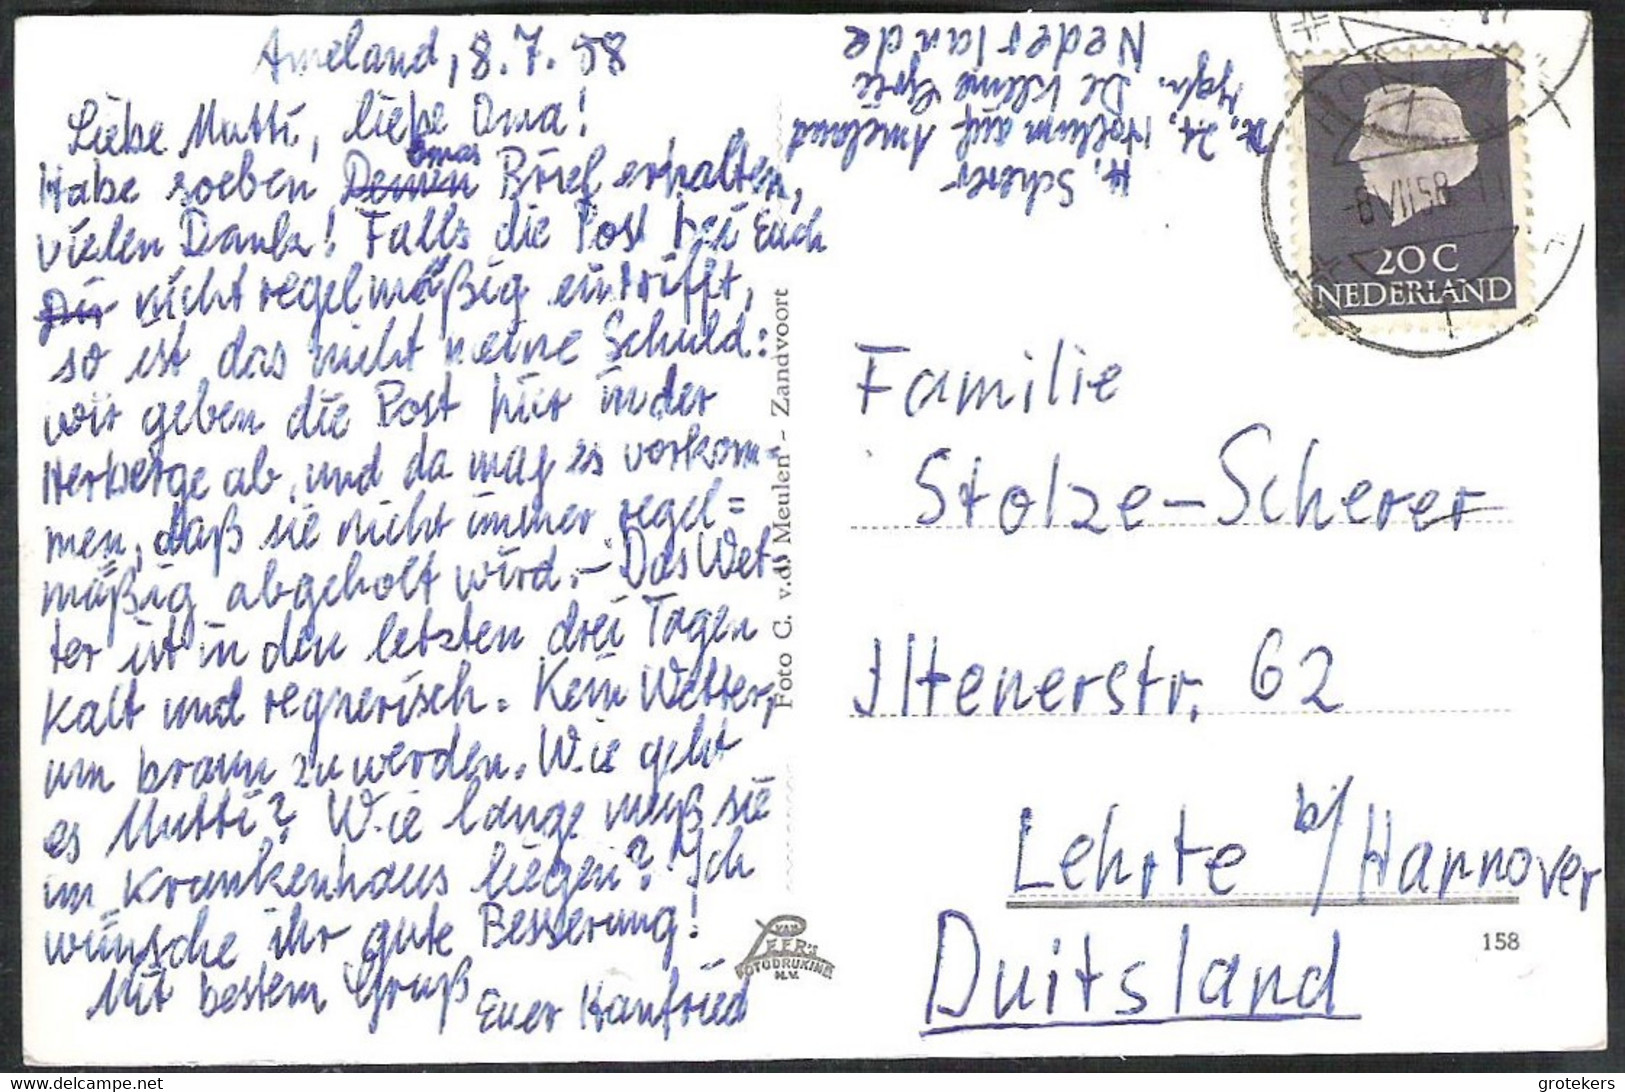 Ameland, 8.7.58
Liebe Mutti, liebe Oma!
Omas
Habe soeben Deinen Brief erhalten,
vielen Dank! Falls die Post bei Euch
Dir nicht regelmäßig eintrifft,
so ist das nicht meine Schuld:
wir geben die Post hier in der
Herberge ab, und da mag es vorkom=
men, daß sie nicht immer regel=
mäßig abgeholt wird. – Das Wet-
ter ist in den letzten drei Tagen
kalt und regnerisch. Kein Wetter,
um braun zu werden. Wie geht
es Mutti? Wie lange muß sie
im Krankenhaus liegen? Ich
wünsche ihr gute Besserung!
Mit bestem Gruß
Euer Hanfried
Foto G. v.d. Meulen - Zandvoort
VAN LEER'S
FOTODRUKIND.
N.V.
H. Scherer
z. Zt. Hollum auf Ameland
Jgh. De kleine Grie
Nederlande
8 VII 58
20 C
NEDERLAND
Familie
Stolze-Scherer
Iltenerstr. 62
Lehrte b/Hannover
Duitsland
158
delcampe.net
grotekers